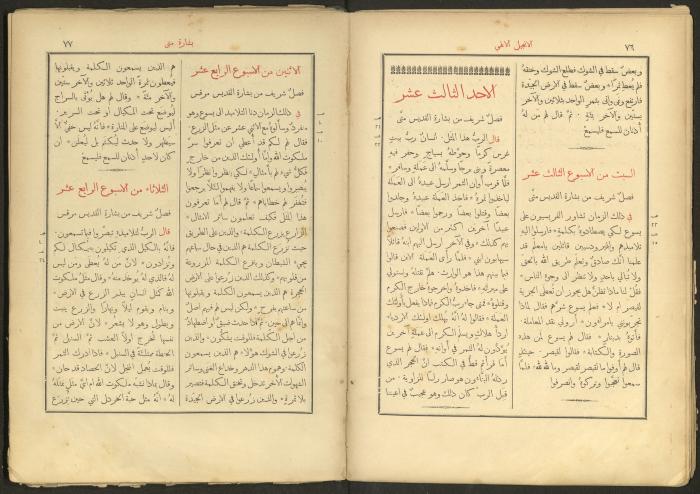 ٧٦
الانجيل الالهي
وبعضٌ سقط في الشوك فطلع الشوك وخنقهُ
فلم يُعطِ ثمرًا* وبعضٌ سقط في الارض الجيّدة
فارتفع ونمى واتى بثمرٍ الواحد بثلاثين والآخر
بستين والآخر بمئةٍ* ثمَّ قال لهم مَن لهُ
أذنان للسمع فليسمع
السبت من الاسبوع الثالث عشر
فصلٌ شريف من بشارة القديس متّى
في ذلك الزمان تشاور الفريسيون على
يسوع لكي يصطادوهُ بكلمة* فارسلوا اليهِ
تلاميذهم والهيرودسيين قائلين يا معلم قد
علمنا أنّك صادقٌ وتعلّم طريق الله بالحق
ولا تُبالي باحدٍ ولا تنظر الى وجوه الناس*
فقُلْ لنا ماذا تظنُّ هل يجوز أن تُعطى الجزية
لقيصر ام لا* فعلم يسوع شرَّهم فقال لماذا
تجرّبونني يا مراؤون* أروني نقد المعاملة.
فأتَوْهُ بدينار* فقال لهم يسوع لمن هذه
الصورة والكتابة* فقالوا لقيصر. حينئذٍ
قال لهم أوفوا ما لقيصر لقيصر وما لله لله* فلمّا
سمعوا تعجّبوا وتركوهُ وانصرفوا
الاحد الثالث عشر
فصلٌ شريف من بشارة القديس متّى
قال الربُّ هذا المثل. انسانٌ ربُّ بيتٍ
غرس كرمًا وحوّطهُ بسياجٍ وحفر فيهِ
معصرةً وبنى برجًا وسلّمهُ الى عَمَلةٍ وسافر*
فلمّا قرب أوان الثمر أرسل عبيدهُ الى العَمَلة
ليأخذوا ثمرهُ* فاخذ العملة عبيدهُ وجلدوا
بعضًا وقتلوا بعضًا ورجموا بعضًا* فارسل
عبيدًا آخرين اكثر من الاولين فصنعوا
بهم كذلك* وفي الآخر ارسل اليهم ابنهُ قائلاً
سيهابون ابني* فلمّا رأى العملة الابن قالوا
فيما بينهم هذا هو الوارث. هلمَّ نقتلهُ ونستولي
على ميراثهِ* فاخذوهُ واخرجوهُ خارج الكرم
وقتلوهُ* فمتى جاء ربُّ الكرم فماذا يفعل باولئك
العملة* فقالوا لهُ انّهُ يُهلك اولئك الاردياء
أردأ هلاكٍ ويسلّم الكرم الى عملةٍ آخرين
يؤدّون لهُ الثمر في أوانهِ* فقال لهم يسوع
أما قرأتم قطُّ في الكتب انّ الحجر الذي
رذلهُ البنّاؤون هو صار رأسًا للزاوية. من
قِبَل الربّ كان ذلك وهو عجيبٌ في اعيننا
بشارة متى
٧٧
الاثنين من الاسبوع الرابع عشر
فصلٌ شريف من بشارة القديس مرقس
في ذلك الزمان دنا التلاميذ الى يسوع وهو
منفردٌ وسألوهُ مع الاثني عشر عن مثل الزرع.
فقال لهم لكم قد أُعطي ان تعرفوا سرّ
ملكوت الله وأمّا أولئك الذين من خارج
فكلُّ شيءٍ لهم بأمثال* لكي ينظروا نظرًا ولا
يُبصروا ويسمعوا سماعًا ولا يفهموا لئلاّ يرجعوا
فتُغفَر لهم خطاياهم* ثمَّ قال لهم أما تعرفون
هذا المثل فكيف تعلمون سائر الامثال*
الزارع يزرع الكلمة* والذين على الطريق
حيث تُزرَع الكلمة هم الذين في حال سماعهم
يجيءُ الشيطان وينزع الكلمة المزروعة
من قلوبهم* وكذلك الذين زُرعوا على الارض
الحجرة هم الذين يسمعون الكلمة ويقبلونها
من ساعتهم بفرح* ولكن ليس لهم فيهم اصلٌ
وانّما هم الى حين. ثمَّ اذا حدث ضيقٌ او اضطهادٌ
من اجل الكلمة فللوقت يشكّون* والذين
زُرعوا في الشوك هؤلاء هم الذين يسمعون
الكلمة وهموم هذا الدهر وخداع الغنى وسائر
الشهوات الأُخَر تدخل وتخنق الكلمة فتصير
بلا ثمرةٍ* والذين زُرعوا في الارض الجيّدة
هم الذين يسمعون الكلمة ويقبلونها
فيعطون ثمرةً الواحد ثلاثين والآخر ستين
والآخر مئةً* وقال لهم هل يُؤتى بالسراج
ليُوضع تحت المكيال او تحت السرير.
أليس ليوضع على المنارة* فانّهُ ليس خفيٌّ الّا
سيظهر ولا حدث ليُكتم بل ليُعلَن* ان
كان لاحدٍ أذنان للسمع فليسمع
الثلاثاء من الاسبوع الرابع عشر
فصلٌ شريف من بشارة القديس مرقس
قال الربّ لتلاميذهِ تبصَّروا فيما تسمعون.
فانّهُ بالكيل الذي تكيلون بهِ يُكال لكم
وتُزادون* لانّ مَن لهُ يُعطى ومَن ليس
لهُ فالذي لهُ يؤخذ منهُ* وقال مثل ملكوت
الله كمثل انسانٍ يبذر الزرع في الارض*
وينام ويقوم ليلاً ونهارًا والزرع ينمي
ويطول وهو لا يشعر* لانّ الارض من
نفسها تُخرج اولاً العشب ثمَّ السنبل ثمَّ
الحنطة ممتلئةً في السنبل* فاذا ادرك الثمر
فللوقت يُعمل المنجل لانّ الحصاد قد حان*
وقال بماذا نشبّه ملكوت الله ام ايّ مثلٍ نمثّلهُ
لهُ* انّهُ مثل حبّة الخردل التي حين تُزرَع